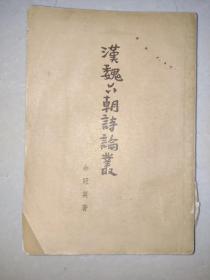 漢魏六朝詩論叢
余冠英著